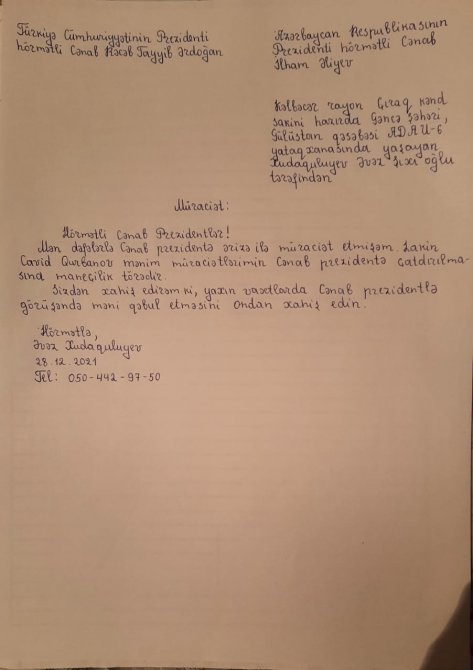 Türkiyə Cümhuriyyətinin Prezidenti
hörmətli Cənab Rəcəb Tayyib Ərdoğan
Azərbaycan Respublikasının
Prezidenti hörmətli Cənab
İlham Əliyev
Kəlbəcər rayon Çıraq kənd
sakini hazırda Gəncə şəhəri,
Gülüstan qəsəbəsi ADAU-6
yataqxanasında yaşayan
Xudaquluyev Əvəz Şıxı oğlu
tərəfindən
Müraciət:
Hörmətli Cənab Prezidentlər!
Mən dəfələrlə Cənab prezidentə ərizə ilə müraciət etmişəm. Lakin
Cavid Qurbanov mənim müraciətlərimin Cənab prezidentə çatdırılma-
sında maneçilik törədir.
Sizdən xahiş edirəm ki, yaxın vaxtlarda Cənab prezidentlə
görüşəndə məni qəbul etməsini ondan xahiş edin.
Hörmətlə,
Əvəz Xudaquluyev
28.12.2021
Tel: 050-442-97-50